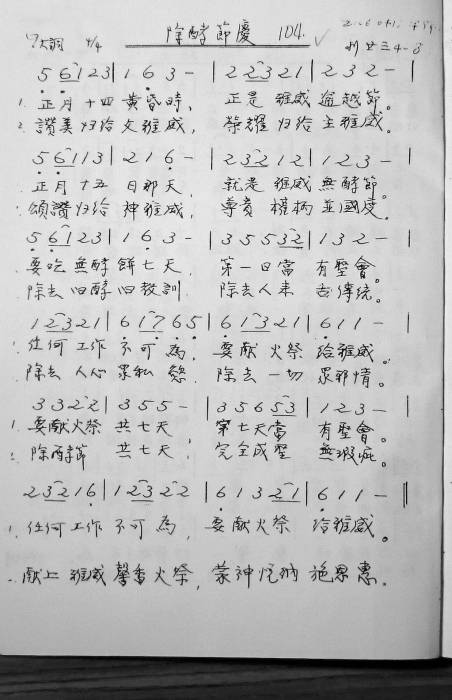 除酵節慶 104.
4/4
利廿三4-8
5 6123 | 1 6 3 - | 2 2321 | 2 3 2 - |
1. 正月十四黃昏時, 正是雅威逾越節。
2. 讚美归给父雅威, 榮耀归给主雅威。
5 6113 | 2 1 6 - | 2 3212 | 1 2 3 - |
正月十五日那天, 就是雅威無酵節。
頌讚归给神雅威, 尊貴權柄並國度。
5 6123 | 1 6 3 - | 3 5 532 | 1 3 2 - |
要吃無酵餅七天, 第一日當有聖會。
除去旧酵旧教訓, 除去人来古傳統。
12321 | 61765 | 61321 | 611 - |
1. 任何工作不可為, 要献火祭给雅威。
除去人心眾私慾, 除去一切眾邪情。
3322 | 355 - | 35653 | 123 - |
1. 要献火祭共七天, 第七天當有聖會。
2. 除酵節共七天, 完全成聖無瑕疵。
23216 | 12322 | 61321 | 611 - ||
1. 任何工作不可為, 要献火祭给雅威。
献上雅威馨香火祭, 蒙神悅納施恩惠。